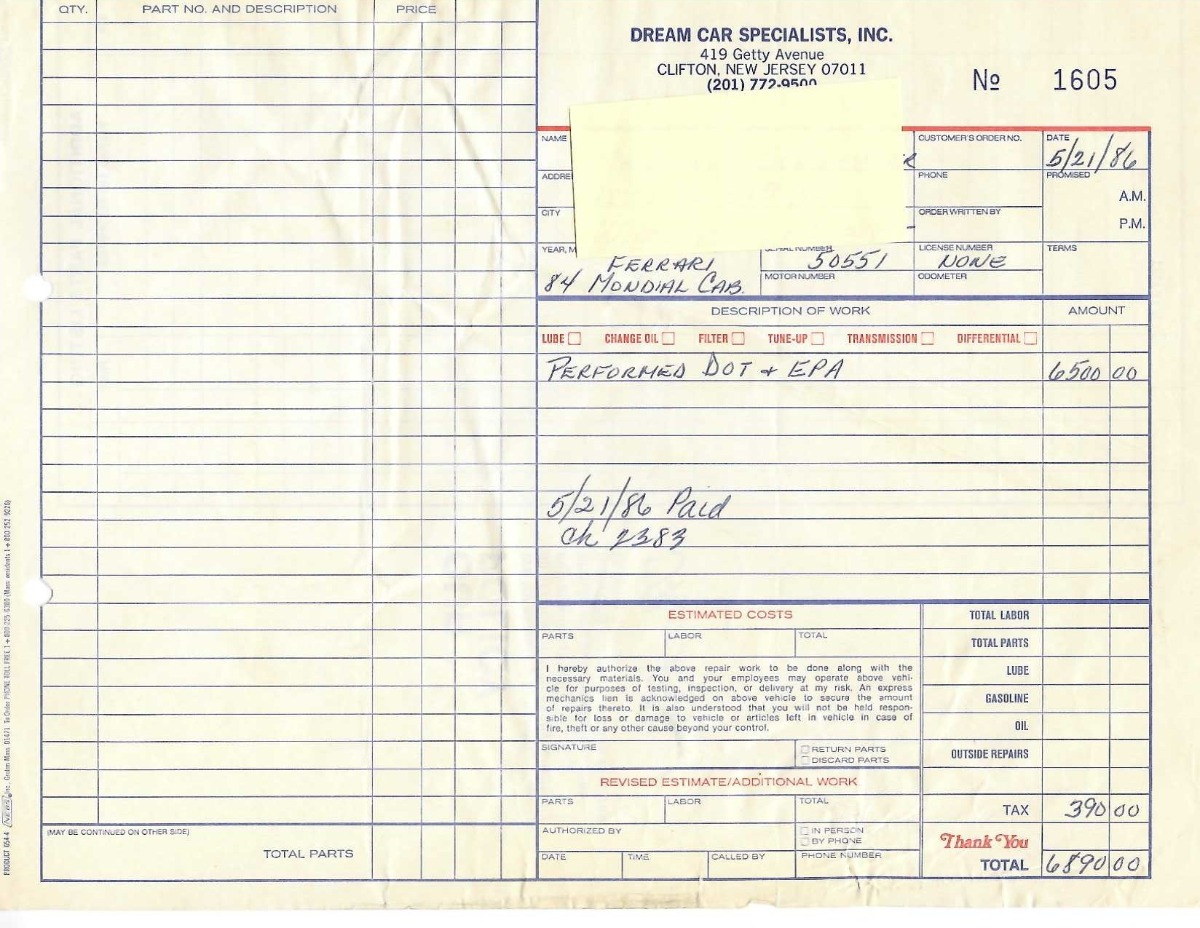 QTY. PART NO. AND DESCRIPTION PRICE
(MAY BE CONTINUED ON OTHER SIDE)
TOTAL PARTS
DREAM CAR SPECIALISTS, INC.
419 Getty Avenue
CLIFTON, NEW JERSEY 07011
(201) 772-9500
Nº 1605
NAME CUSTOMER'S ORDER NO. DATE
5/21/86
PHONE PROMISED
A.M.
CITY ORDER WRITTEN BY
P.M.
SERIAL NUMBER LICENSE NUMBER TERMS
FERRARI 50551 NONE
MOTOR NUMBER ODOMETER
84 MONDIAL CAB.
DESCRIPTION OF WORK AMOUNT
LUBE CHANGE OIL FILTER TUNE-UP TRANSMISSION DIFFERENTIAL
PERFORMED DOT + EPA 6500 00
5/21/86 Paid
Ck 2383
ESTIMATED COSTS
PARTS LABOR TOTAL
I hereby authorize the above repair work to be done along with the
necessary materials. You and your employees may operate above vehi-
cle for purposes of testing, inspection, or delivery at my risk. An express
mechanics lien is acknowledged on above vehicle to secure the amount
of repairs thereto. It is also understood that you will not be held respon-
sible for loss or damage to vehicle or articles left in vehicle in case of
fire, theft or any other cause beyond your control.
SIGNATURE
RETURN PARTS
DISCARD PARTS
REVISED ESTIMATE/ADDITIONAL WORK
PARTS LABOR TOTAL
AUTHORIZED BY
IN PERSON
BY PHONE
DATE TIME CALLED BY PHONE NUMBER
TOTAL LABOR
TOTAL PARTS
LUBE
GASOLINE
OIL
OUTSIDE REPAIRS
TAX 390 00
Thank You
TOTAL 6890 00